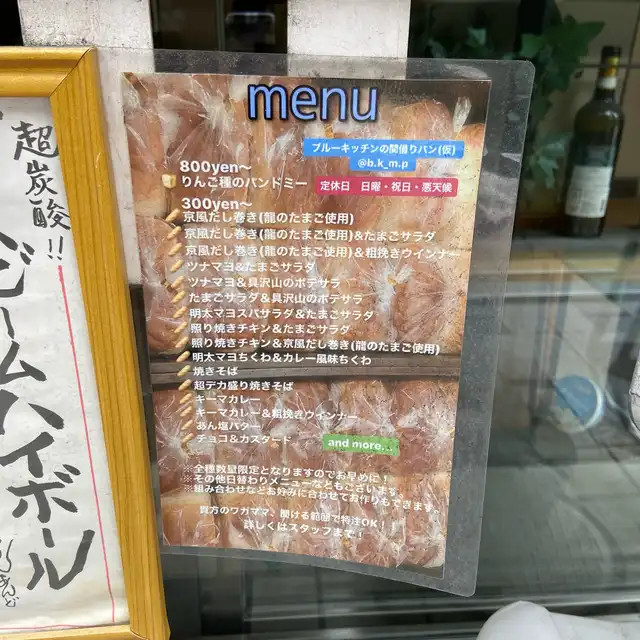 menu
ブルーキッチンの間借りパン(仮)
@b.k_m.p
800yen〜
りんご種のパンドミー
定休日 日曜・祝日・悪天候
300yen〜
京風だし巻き(龍のたまご使用)
京風だし巻き(龍のたまご使用)&たまごサラダ
京風だし巻き(龍のたまご使用)&粗挽きウインナー
ツナマヨ&たまごサラダ
ツナマヨ&具沢山のポテサラ
たまごサラダ&具沢山のポテサラ
明太マヨスパサラダ&たまごサラダ
照り焼きチキン&たまごサラダ
照り焼きチキン&京風だし巻き(龍のたまご使用)
明太マヨちくわ&カレー風味ちくわ
焼きそば
超デカ盛り焼きそば
キーマカレー
キーマカレー&粗挽きウインナー
あん塩バター
チョコ&カスタード
and more...
※全種数量限定となりますのでお早めに!
※その他日替わりメニューなどもございます。
※組み合わせなどお好みに合わせてお作りもできます。
貴方のワガママ、聞ける範囲で特注OK!!
詳しくはスタッフまで!
超炭酸!!
ジームハイボール